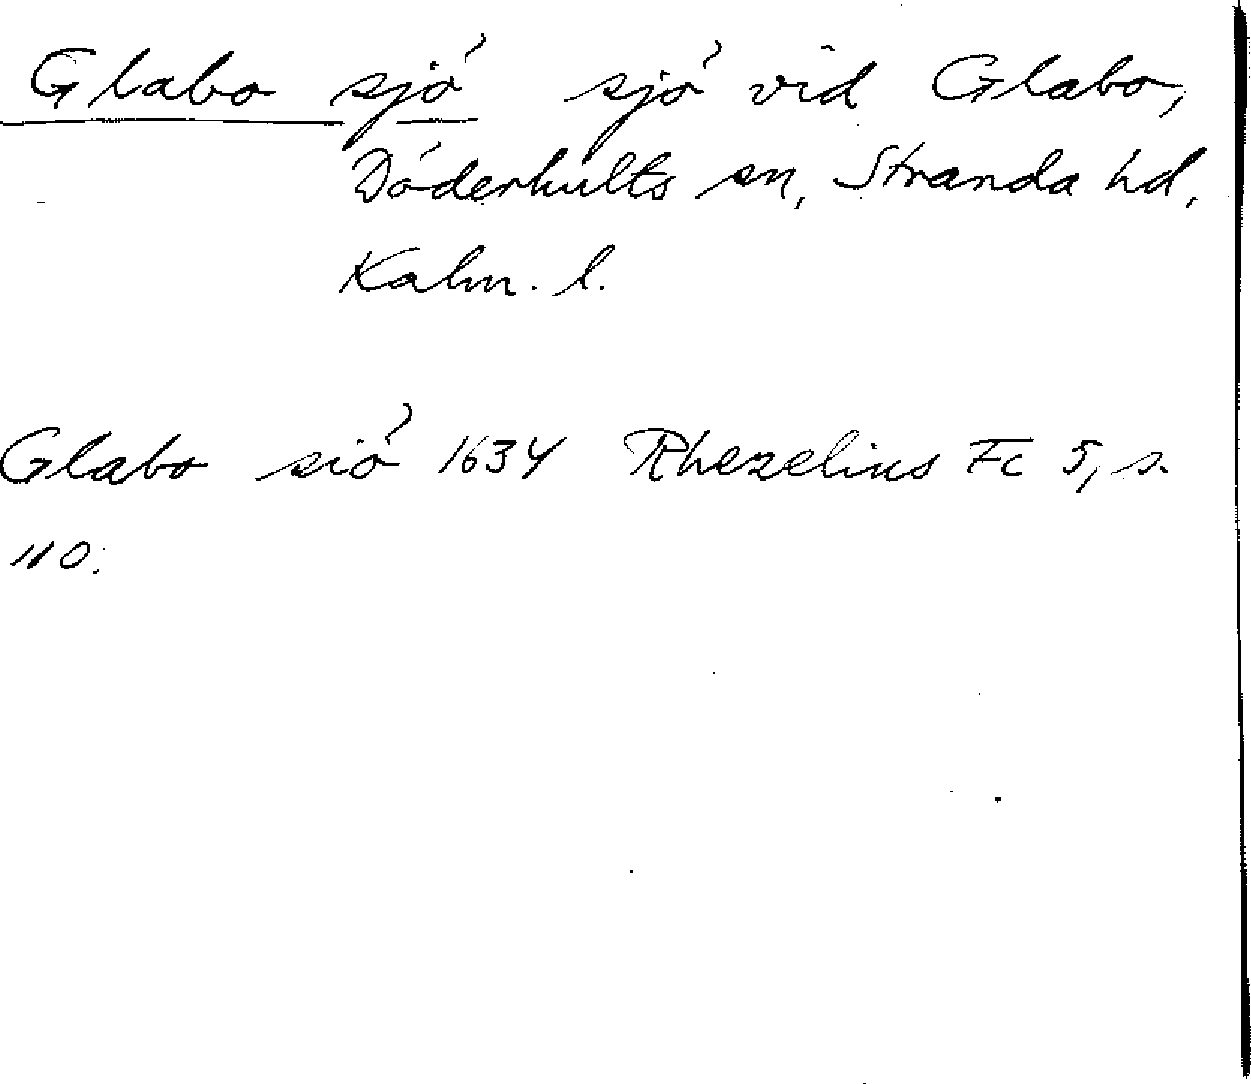 Glabo sjö sjö vid Glabo,
Döderhults sn, Stranda hd,
Kalm. l.
Glabo siö 1634 Rhezelius Fc 5, s.
110.